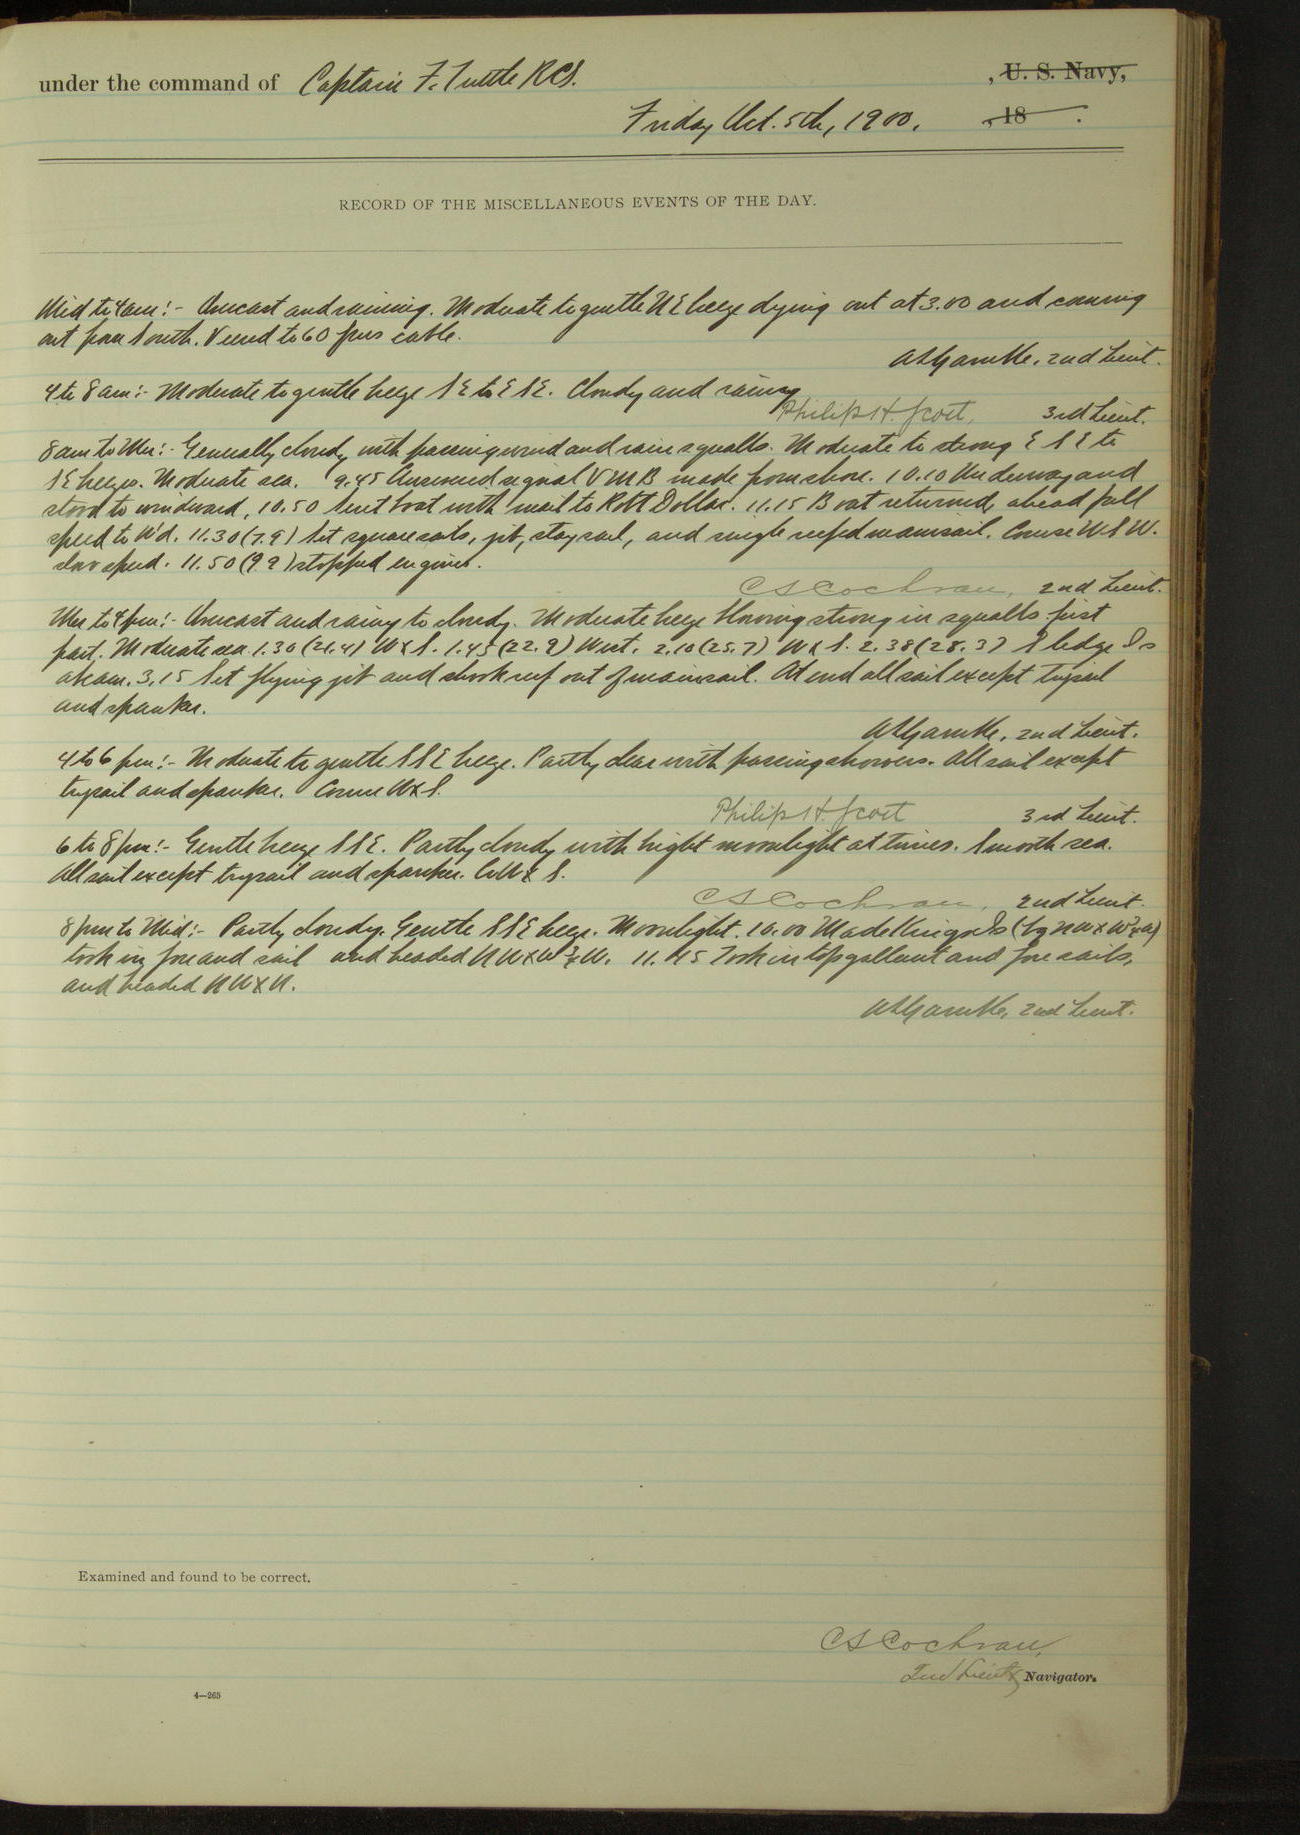 under the command of Captain F. Tuttle RCS. , U. S. Navy,
Friday Oct. 5th, 1900. , 18 .
RECORD OF THE MISCELLANEOUS EVENTS OF THE DAY.
Mid to 4 am:- Overcast and raining. Moderate to gentle NE breeze dying out at 3.00 and coming
out from South. Veered to 60 fms cable.
2nd Lieut.
4 to 8 am:- Moderate to gentle breeze SE to ESE. Cloudy and rainy
Philip H. Scott, 3rd Lieut.
8 am to Mer:- Generally cloudy with passing wind and rain squalls. Moderate to strong ESE to
SE breezes. Moderate sea. 9.45 Answered signal VMB made from shore. 10.10 Underway and
stood to windward, 10.50 Sent boat with mail to Robt Dollar. 11.15 Boat returned, ahead full
speed to W'd. 11.30 (7.9) Set squaresails, jib, staysail, and single reefed mainsail. Course WSW.
slow speed. 11.50 (9.9) stopped engines.
C S Cochran, 2nd Lieut.
Mer to 4 pm:- Overcast and rainy to cloudy. Moderate breeze blowing strong in squalls first
part. Moderate sea. 1.30 (21.4) WxS. 1.45 (22.9) West. 2.10 (25.7) WxS. 2.38 (28.3) Sledge Is
abeam. 3.15 Set flying jib and shook reef out of mainsail. At end all sail except trysail
and spanker.
2nd Lieut.
4 to 6 pm:- Moderate to gentle SSE breeze. Partly clear with passing showers. All sail except
trysail and spanker. Course WxS.
Philip H. Scott 3rd Lieut.
6 to 8 pm:- Gentle breeze SSE. Partly cloudy with bright moonlight at times. Smooth sea.
All sail except trysail and spanker. Co WxS.
C S Cochran, 2nd Lieut.
8 pm to Mid:- Partly cloudy. Gentle SSE breeze. Moonlight. 10.00 Made Kings Is
took in fore and sail and headed NWxW¾W. 11.45 Took in topgallant and fore sails,
and headed NWxN.
2nd Lieut.
Examined and found to be correct.
C S Cochran,
2nd Lieut, Navigator.
4—265